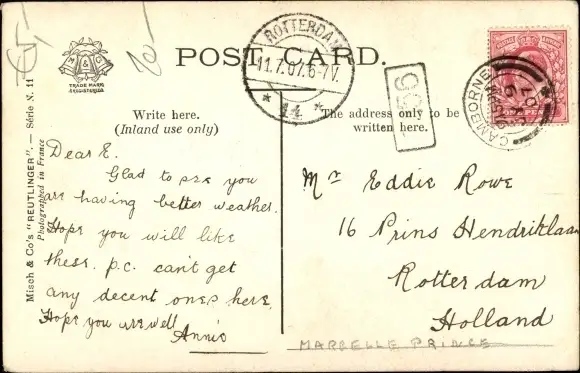 €5,-
20-
M & C
TRADE MARK
REGISTERED
POST CARD.
ROTTERDAM
11.7.07.6-7V.
* 14 *
56
CAMBORNE
JY 9
07
Write here.
(Inland use only)
The address only to be
written here.
Misch & Co's "REUTLINGER". — Série N. 11
Photographed in France
Dear E.
Glad to see you
are having better weather.
Hope you will like
these. p.c. can't get
any decent ones here.
Hope you are well
Annie
Mr Eddie Rowe
16 Prins Hendriklaan
Rotterdam
Holland
MARBELLE PRINCE